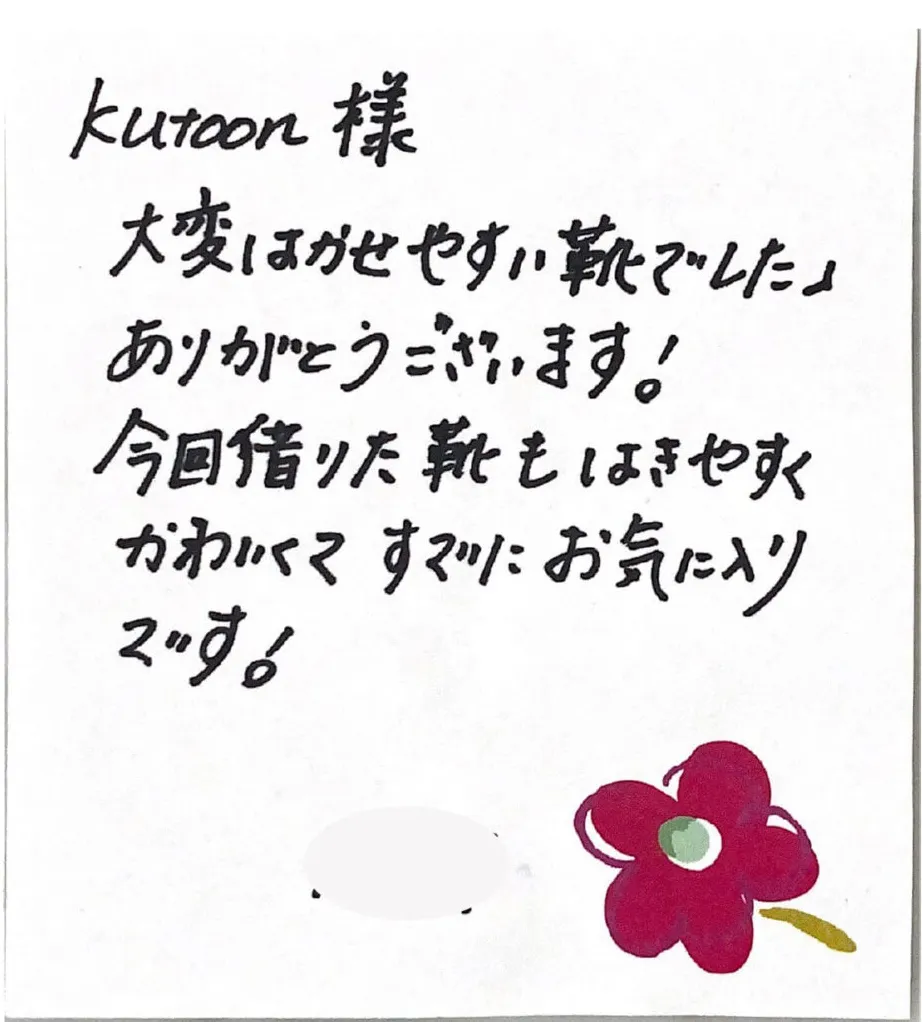 kutoon 様
大変はかせやすい靴でした♪
ありがとうございます!
今回借りた靴もはきやすく
かわいくて すでに お気に入り
です!